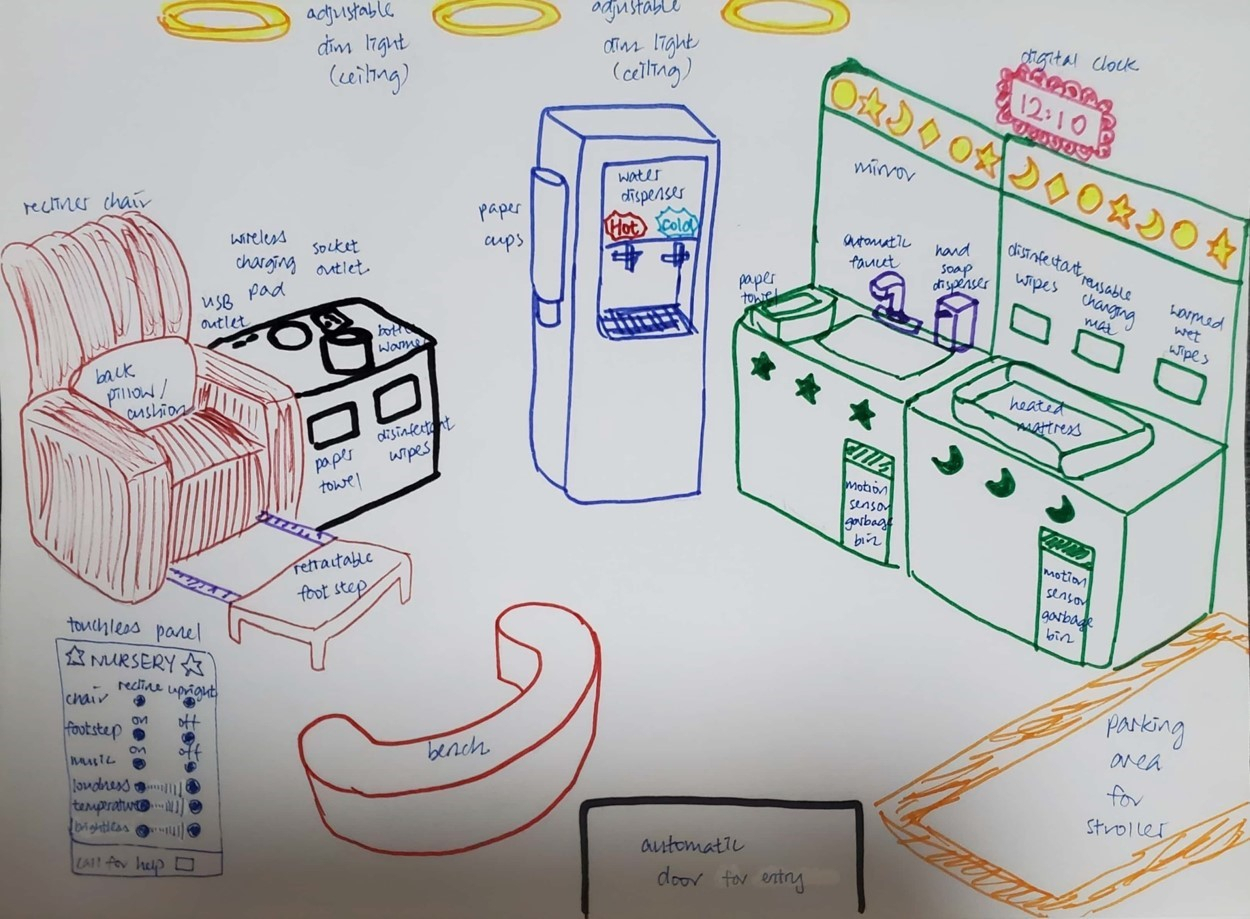 adjustable
dim light
(ceiling)
adjustable
dim light
(ceiling)
digital clock
12:10
mirror
water
dispenser
Hot
Cold
paper
cups
recliner chair
wireless
charging
pad
socket
outlet
USB
outlet
back
pillow/
cushion
paper
towel
disinfectant
wipes
automatic
faucet
hand
soap
dispenser
paper
towel
disinfectant
wipes
reusable
changing
mat
warmed
wet
wipes
heated
mattress
motion
sensor
garbage
bin
motion
sensor
garbage
bin
retractable
foot step
touchless panel
NURSERY
recline upright
chair
on off
footstep
on off
music
loudness
temperature
brightless
call for help
bench
automatic
door for entry
parking
area
for
stroller